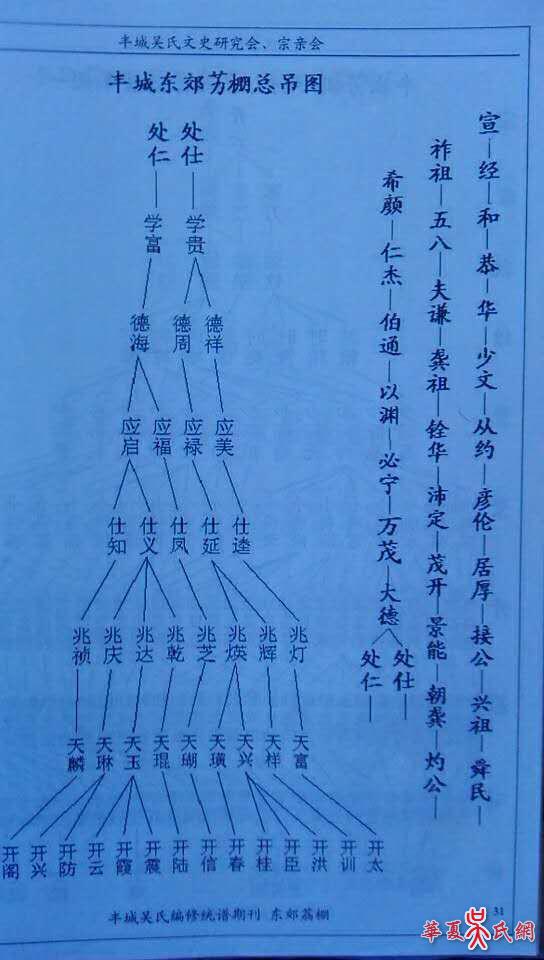 丰城吴氏文史研究会、宗亲会
丰城东郊芀棚总吊图
宣—经—和—恭—华—少文—从约—彦伦—居厚—接公—兴祖—舜民—
祚祖—五八—夫谦—龚祖—铨华—沛定—茂开—景能—朝龚—灼公—
希颜—仁杰—伯通—以渊—必宁—万茂—大德
处仁 处仕
处仁 处仕
学富 学贵
德海 德周 德祥
应启 应福 应禄 应美
仕知 仕义 仕凤 仕延 仕逵
兆祯 兆庆 兆达 兆乾 兆芝 兆煐 兆辉 兆灯
天麟 天琳 天玉 天琨 天瑚 天璜 天兴 天样 天富
开阁 开兴 开防 开云 开霞 开震 开陆 开信 开春 开桂 开臣 开洪 开训 开太
丰城吴氏编修统谱期刊 东郊荔棚
31
華夏吴氏網